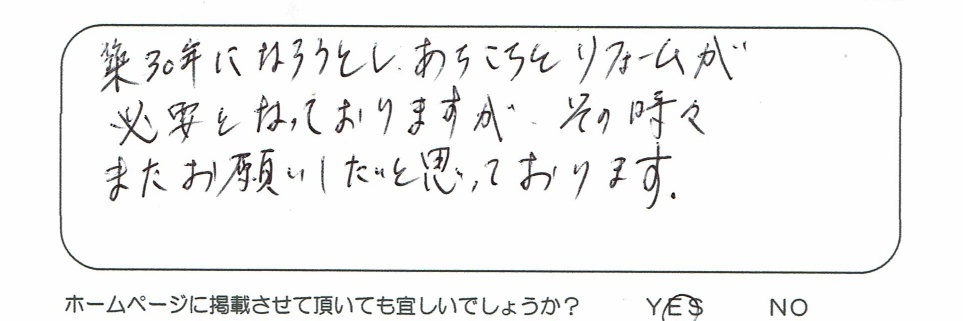 築30年になろうとし、あちこちとリフォームが
必要となっておりますが、その時々
またお願いしたいと思っております。
ホームページに掲載させて頂いても宜しいでしょうか？ YES NO